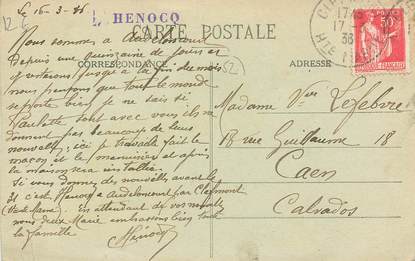 Le 16-3-36
L. HENOCQ
CARTE POSTALE
CORRESPONDANCE
ADRESSE
Nous sommes à Audeloncourt
Depuis une quinzaine de jours et
y restons jusqu'à la fin du mois
nous pensons que tout le monde
se porte bien je ne sais si
sont avec vous ils ne
donnent pas beaucoup de leurs
nouvelles; ici je travaille fait le
maçon et le menuisier et après
la maison sera installée
Si vous donnez de nouvelles avant le
31 c'est Hénocq à Audeloncourt par Clefmont
(Hte Marne). En attendant de vos nouvelles
nous deux Marie embrassons bien toute
la famille
Hénocq
Madame Vve Lefebvre
18 rue Guillaume 18
Caen
Calvados
17
36
50c
52